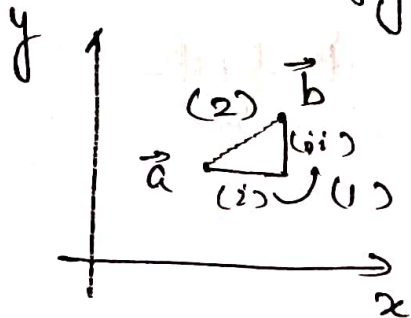 y
(2) b⃗
(ii)
a⃗
(i) (1)
x